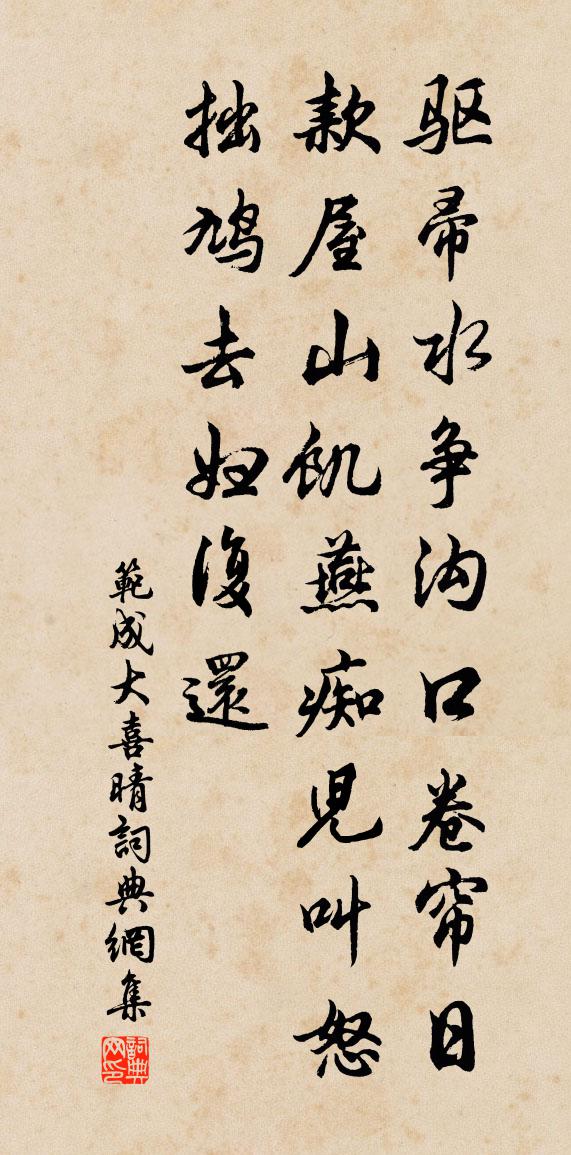 驱帚水争沟口卷帘日
款屋山饥燕痴兒叫怒
拙鸠去妇復還
範成大喜晴詞典網集
詞典
网印